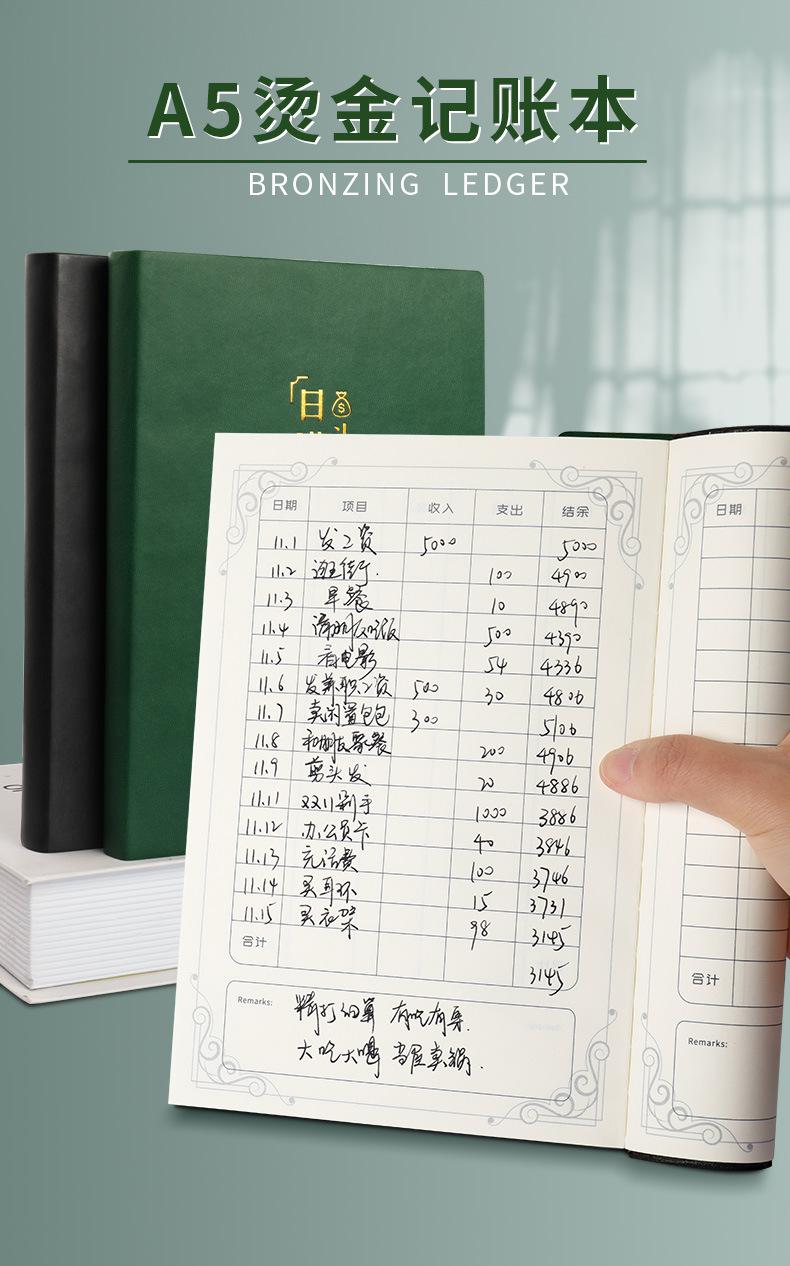 A5烫金记账本
BRONZING LEDGER
日
日期 项目 收入 支出 结余 日期
11.1 发工资 5000 5000
11.2 逛街. 100 4900
11.3 早餐 10 4890
11.4 请朋友吃饭 500 4390
11.5 看电影 54 4336
11.6 发兼职工资 500 30 4806
11.7 卖闲置包包 300 5106
11.8 和朋友聚餐 200 4906
11.9 剪头发 20 4886
11.11 双11剁手 1000 3886
11.12 办公员卡 40 3846
11.13 充话费 100 3746
11.14 买耳环 15 3731
11.15 买衣架 98 3145
合计 3145 合计
Remarks: 精打细算 有吃有 Remarks:
大吃大喝 当屋卖锅.